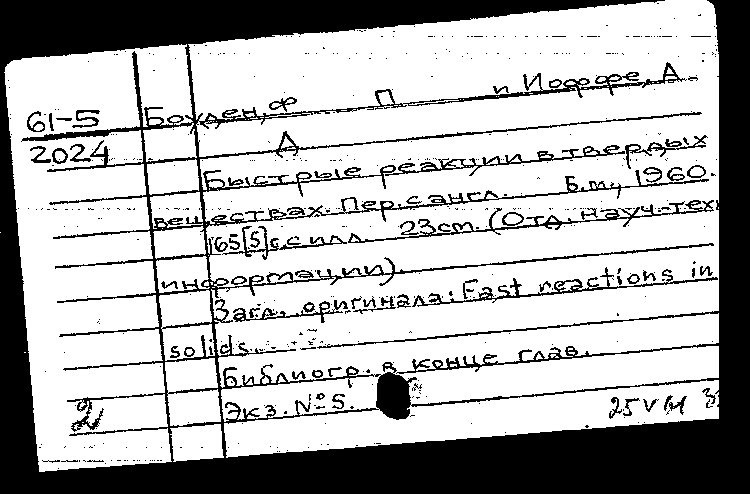 61-5 Боуден, Ф П и Иоффе, А
2024 Д
Быстрые реакции в твердых
веществах. Пер. с англ. Б.м., 1960.
165[5]с. с илл. 23cm. (Отд. науч.-тех
информации).
Загл. оригинала: Fast reactions in
solids.
Библиогр. в конце глав.
Экз. № 5.
2
25 V 61